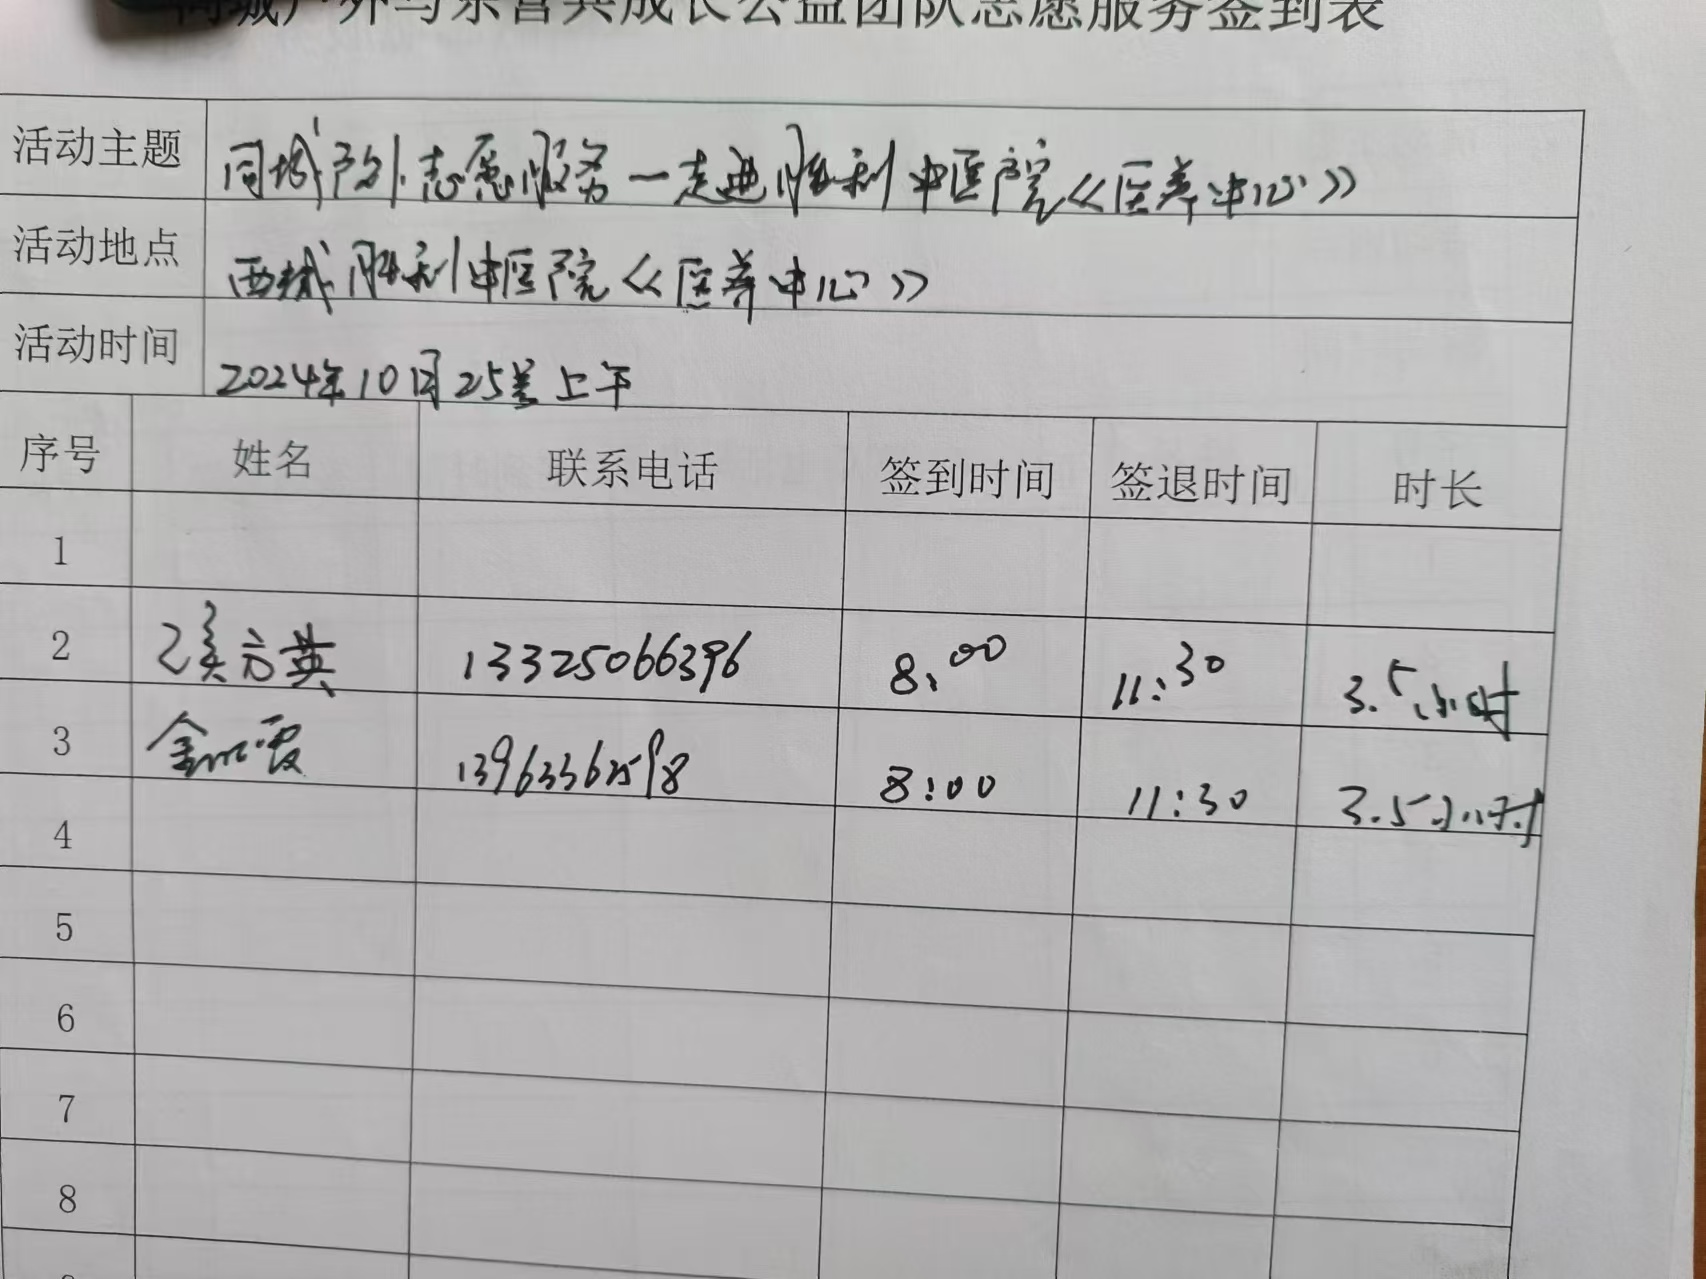 同城户外与东营共成长公益团队志愿服务签到表
活动主题 同城户外志愿服务一走进胜利中医院《医养中心》
活动地点 西城胜利中医院《医养中心》
活动时间 2024年10月25 上午
序号 姓名 联系电话 签到时间 签退时间 时长
1
2 英 13325066396 8:00 11:30 3.5小时
3 金 霞 13963362598 8:00 11:30 3.5小时
4
5
6
7
8